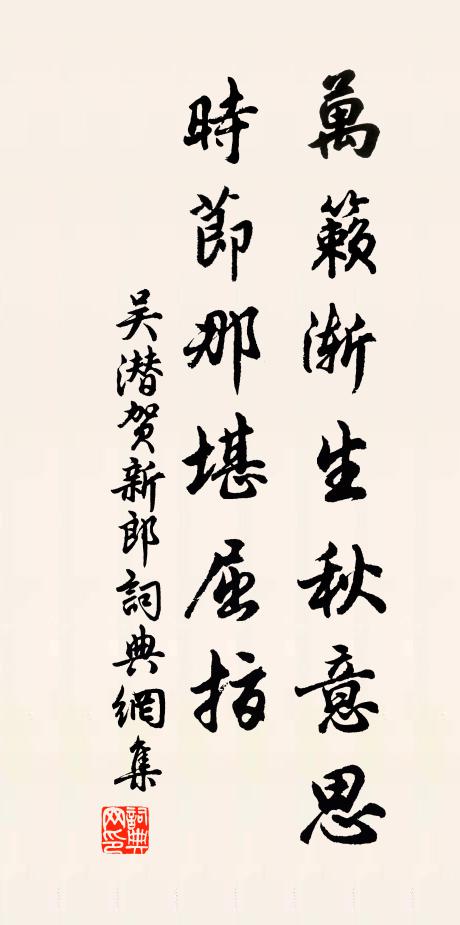 萬籟漸生秋意思
時節那堪屈指
吴潜賀新郎詞典網集
詞典网印